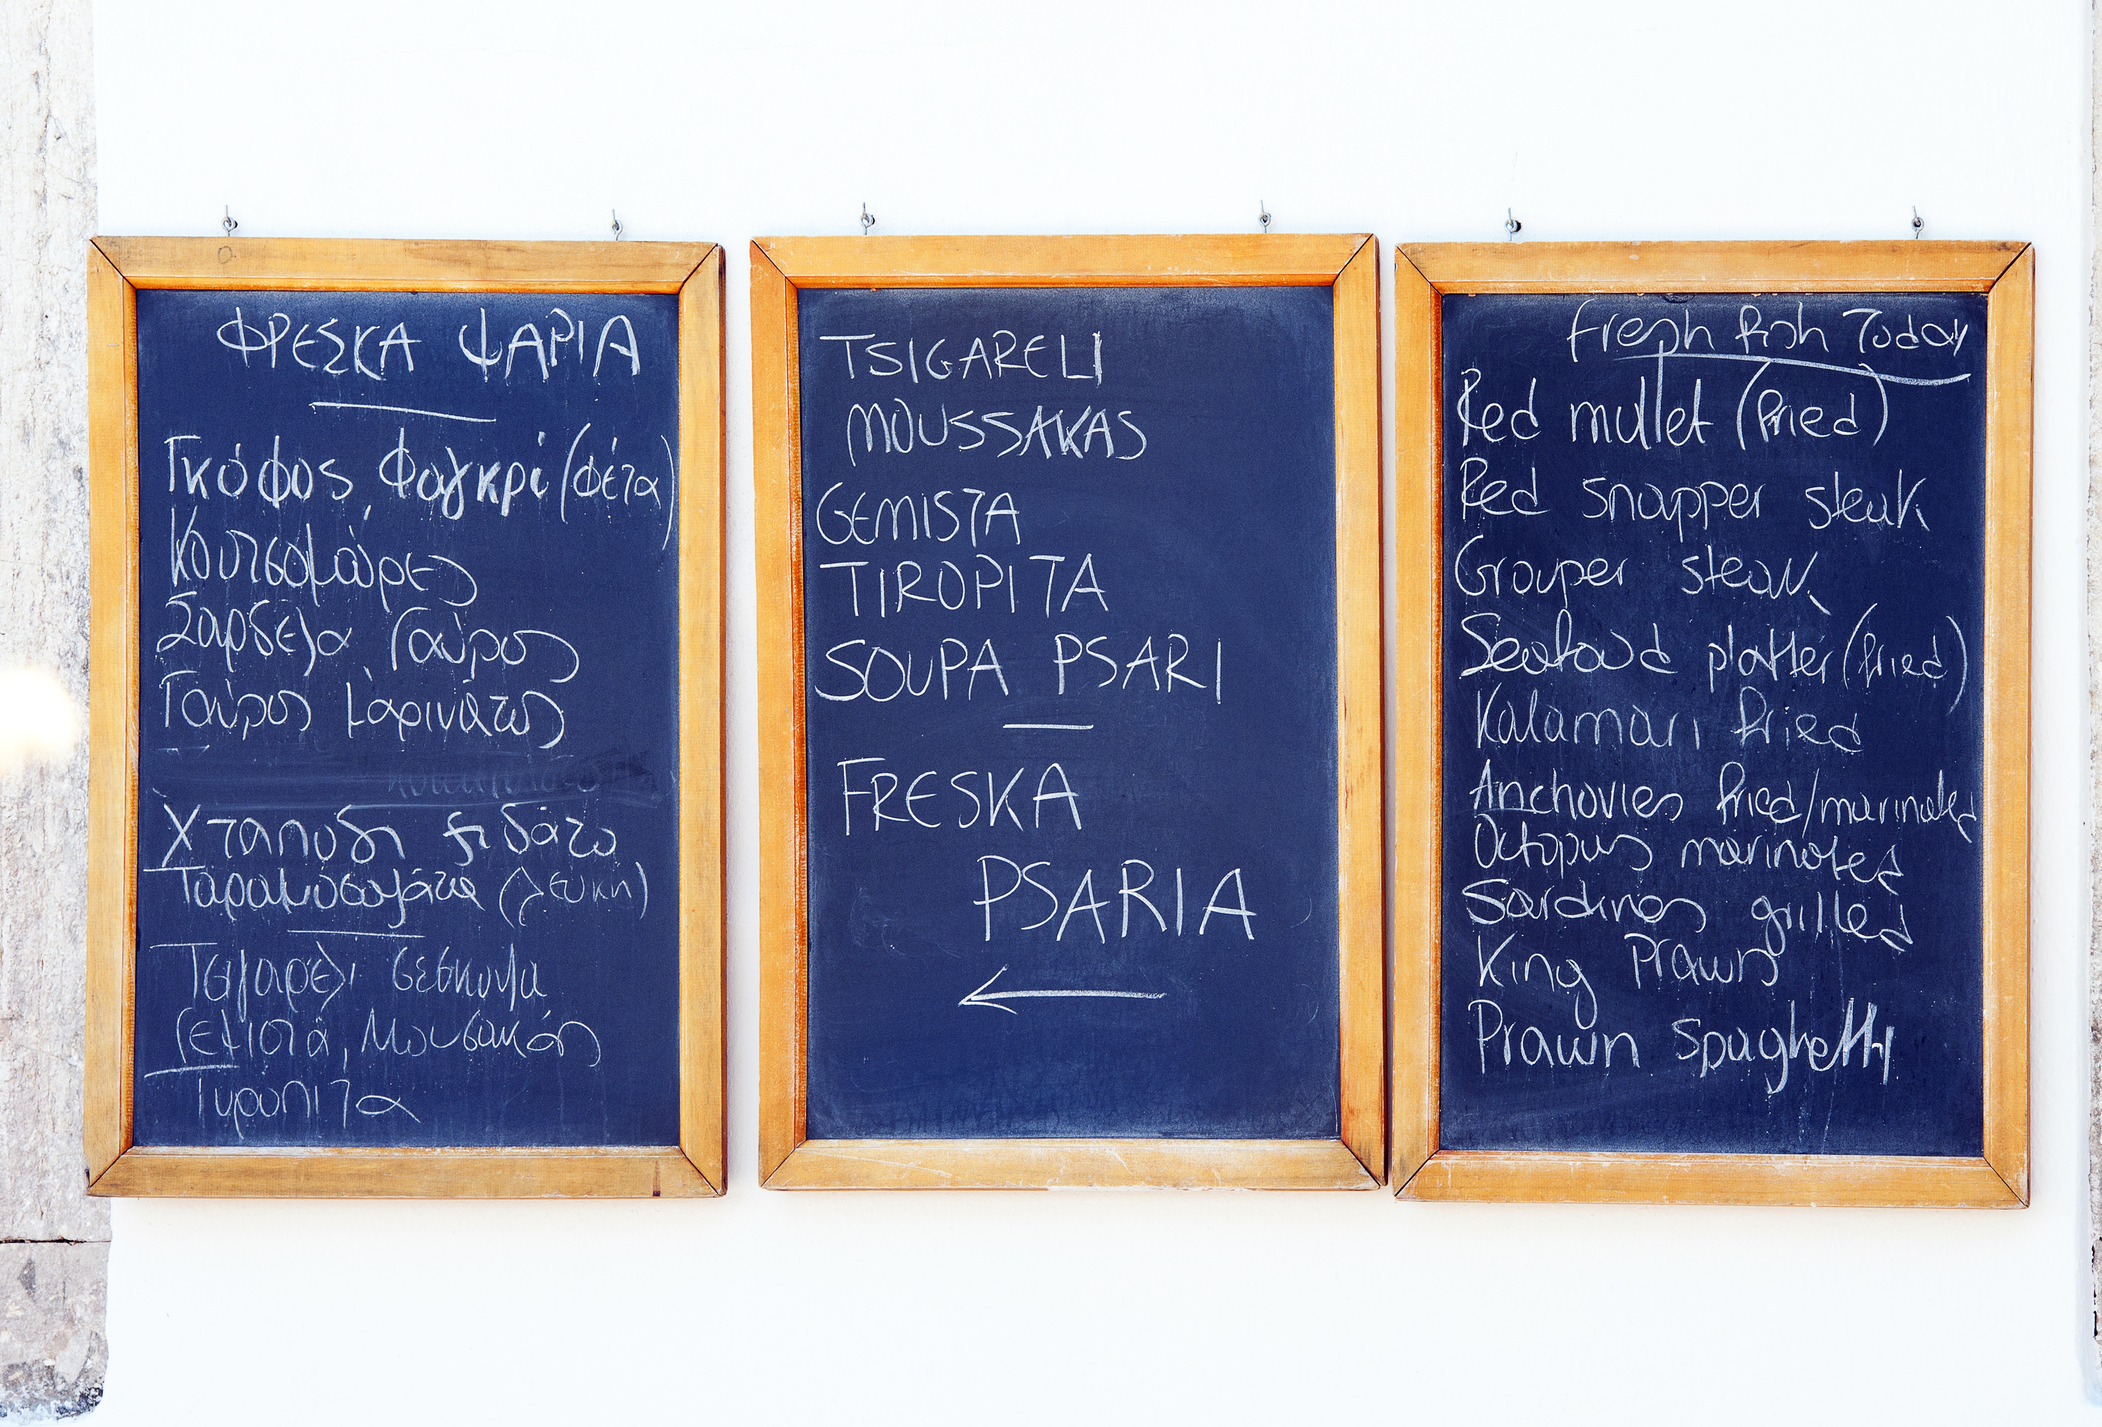 ΦΡΕΣΚΑ ΨΑΡΙΑ
Γκόφος, Φαγκρί (φέτα)
Κουτσομούρες
Σαρδελα, Γαύρος
Γαύρος μαρινάτος
Χταπόδι ξιδάτο
Ταραμοσαλάτα (λευκή)
Τσιγαρέλι σέσκουλα
Γεμιστά, Μουσακάς
Τυροπιτα
TSIGARELI
MOUSSAKAS
GEMISTA
TIROPITA
SOUPA PSARI
FRESKA
PSARIA
fresh fish Today
Red mullet (fried)
Red snapper steak
Grouper steak
Seafood platter (fried)
Kalamari fried
Anchovies fried/marinated
Octopus marinated
Sardines grilled
King Prawns
Prawn spaghetti